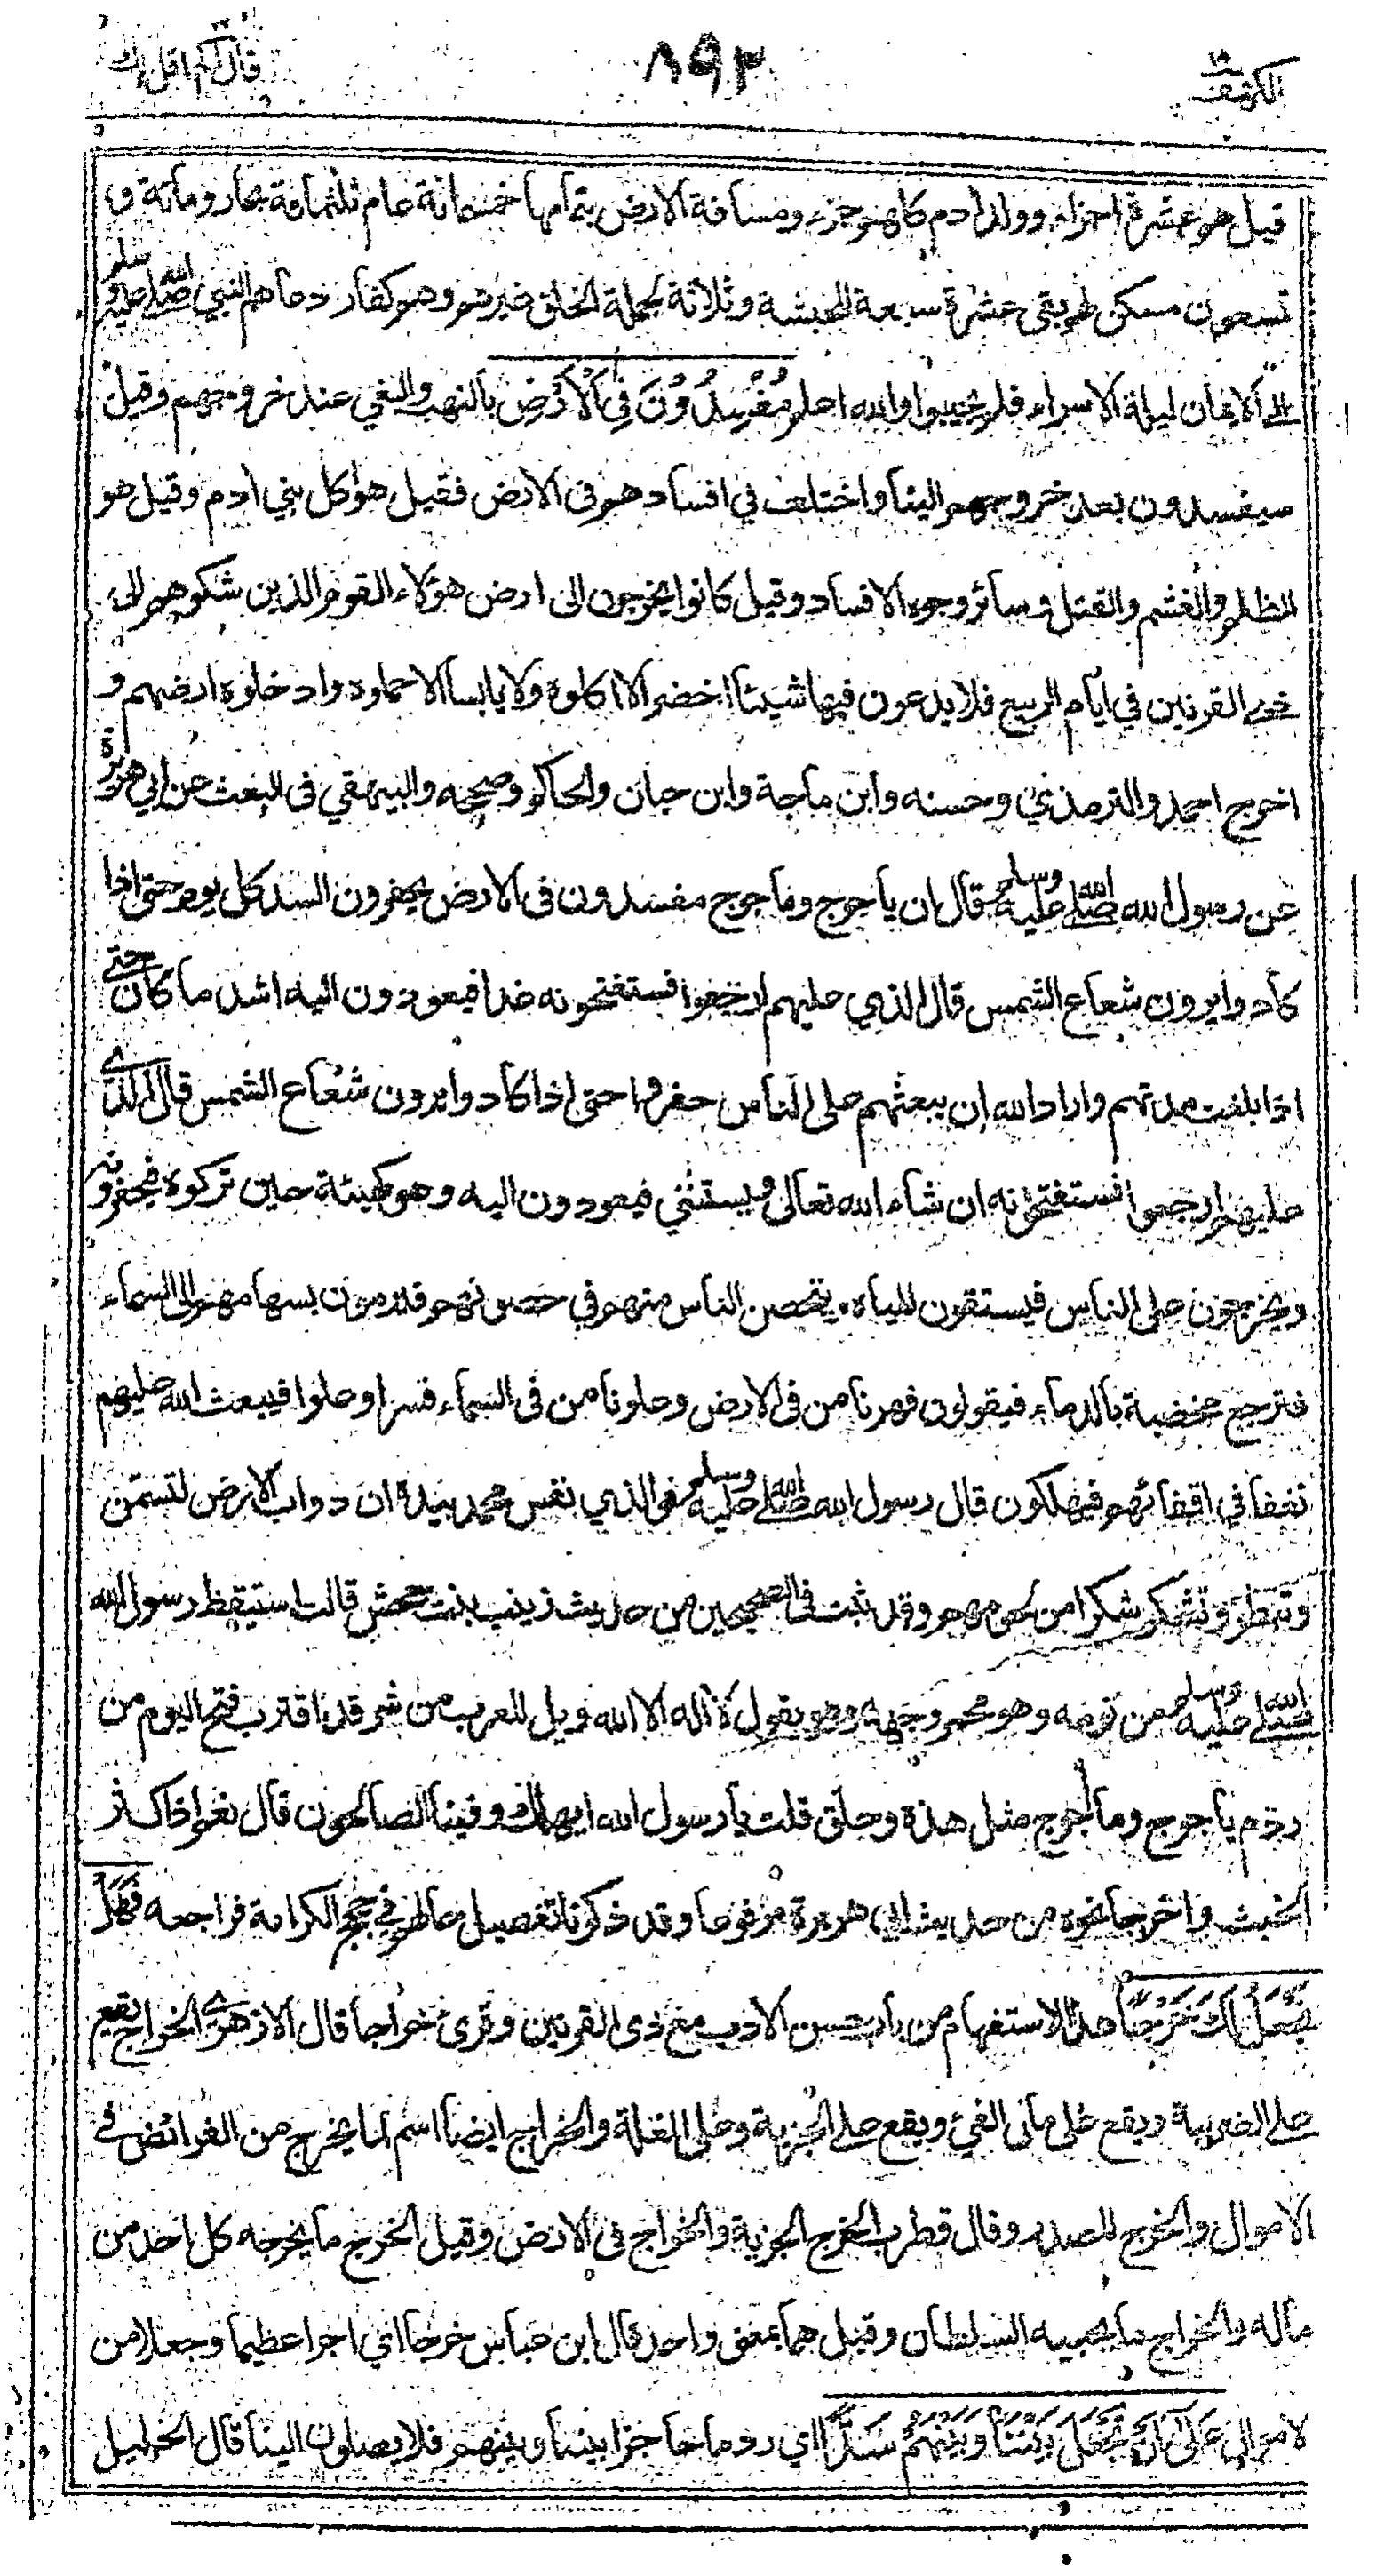 الكهف ١٨
٨٩٢
قال الم اقل لك
قيل هو عشرة اجزاء وولد ادم كلهم جزء ومسافة الارض بتمامها خمسمائة عام ثلثمائة بحار ومائة و
تسعون مسكن بقى عشرة سبعة للحبشة وثلاثة لجملة الخلق غيرهم وهم كفار دعاهم النبي صلى الله عليه وسلم
الى الايمان ليلة الاسراء فلم يجيبوا والله اعلم مُفْسِدُوْنَ فِي الْاَرْضِ بالنهب والبغي عند خروجهم وقيل
سيفسدون بعد خروجهم الينا واختلف في افسادهم في الارض فقيل هو اكل بني ادم وقيل هو
الظلم والغشم والقتل وسائر وجوه الافساد وقيل كانوا يخرجون الى ارض هؤلاء القوم الذين شكوهم الى
ذي القرنين في ايام الربيع فلا يدعون فيها شيئا اخضر الا اكلوه ولا يابسا الا حملوه وادخلوه ارضهم و
اخرج احمد والترمذي وحسنه وابن ماجة وابن حبان والحاكم وصححه والبيهقي في البعث عن ابي هريرة
عن رسول الله صلى الله عليه وسلم قال ان ياجوج وماجوج مفسدون في الارض يحفرون السد كل يوم حتى اذا
كادوا يرون شعاع الشمس قال الذي عليهم ارجعوا فستفتحونه غدا فيعودون اليه اشد ما كان حتى
اذا بلغت مدتهم واراد الله ان يبعثهم على الناس حفروا حتى اذا كادوا يرون شعاع الشمس قال الذي
عليهم ارجعوا فستفتحونه ان شاء الله تعالى ويستثني فيعودون اليه وهو كهيئة حين تركوه فيحفرونه
ويخرجون على الناس فيستقون المياه ويتحصن الناس منهم في حصونهم فيرمون بسهامهم الى السماء
فترجع مخضبة بالدماء فيقولون قهرنا من في الارض وعلونا من في السماء قسرا وعلوا فيبعث الله عليهم
نغفا في اقفائهم فيهلكون قال رسول الله صلى الله عليه وسلم فوالذي نفس محمد بيده ان دواب الارض لتسمن
وتبطر وتشكر شكرا من لحومهم وقد ثبت في الصحيحين من حديث زينب بنت جحش قالت استيقظ رسول الله
صلى الله عليه وسلم من نومه وهو محمر وجهه وهو يقول لا اله الا الله ويل للعرب من شر قد اقترب فتح اليوم من
ردم ياجوج وماجوج مثل هذه وحلق قلت يا رسول الله ايهلك وفينا الصالحون قال نعم اذا كثر
الخبث واخرجا نحوه من حديث ابي هريرة مرفوعا وقد ذكرنا تفصيل حالهم في حجج الكرامة فراجعه فَهَلْ
نَجْعَلُ لَكَ خَرْجًا هذا الاستفهام من باب حسن الادب مع ذي القرنين وقرئ خراجا قال الازهري الخراج يقع
على الضريبة ويقع على مال الفيء ويقع على الجزية وعلى الغلة والخراج ايضا اسم لما يخرج من الفرائض في
الاموال والخرج المصدر وقال قطرب الخرج الجزية والخراج في الارض وقيل الخرج ما يخرجه كل احد من
ماله والخراج ما يجبيه السلطان وقيل هما بمعنى واحد قال ابن عباس خرجا اي اجرا عظيما وجعلا من
لاموال عَلٰى اَنْ تَجْعَلَ بَيْنَنَا وَبَيْنَهُمْ سَدًّا اي ردما حاجزا بيننا وبينهم فلا يصلون الينا قال الخليل